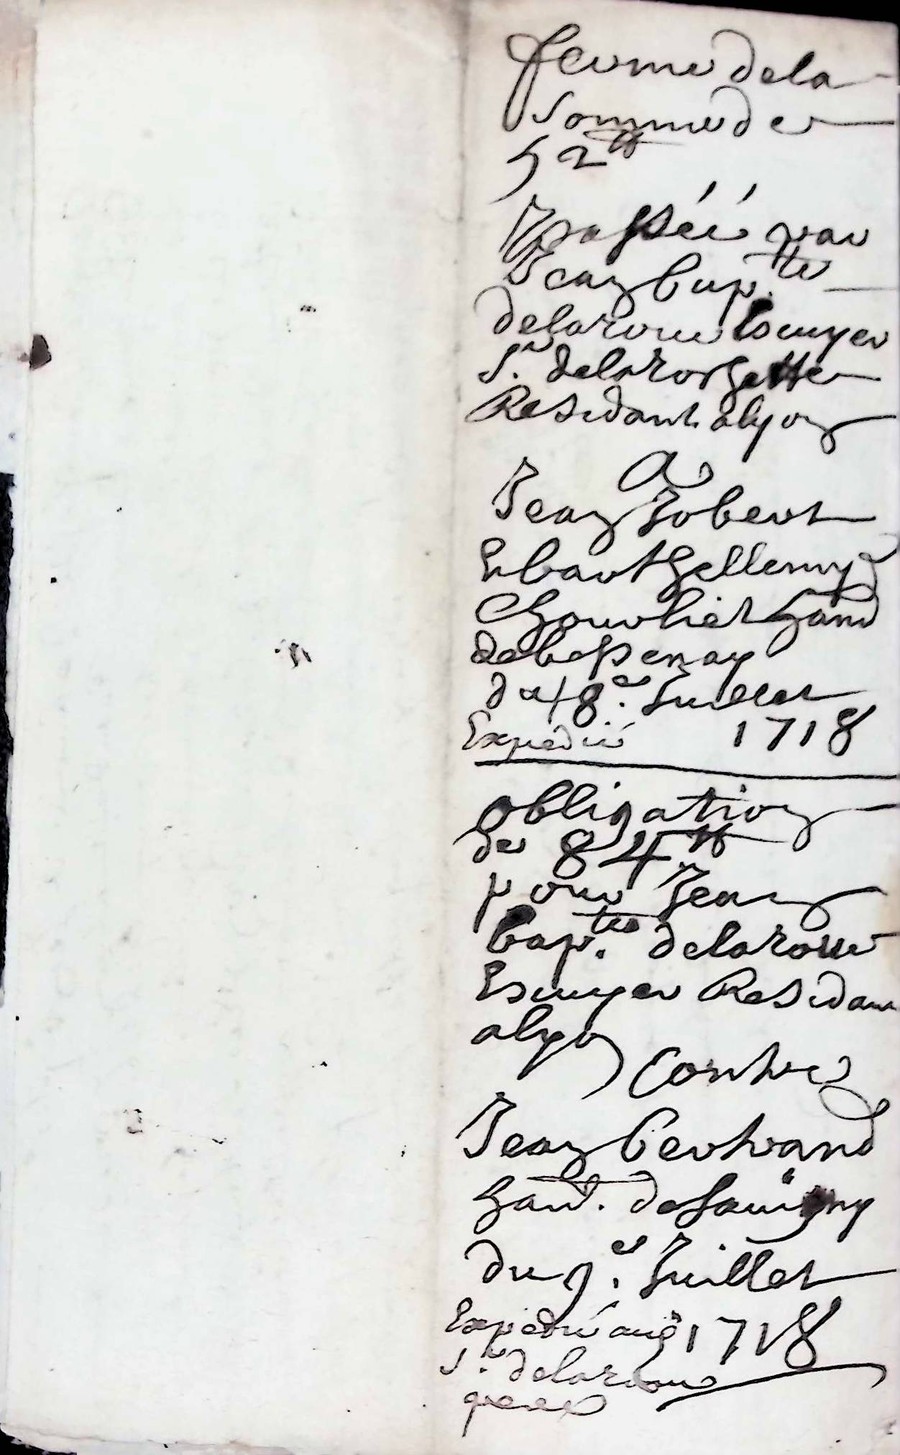 ferme dela
Somme de
52tt
passéé par
Jean bap.te
delaroue Escuyer
S.r delarorgette
Residant alyon
a
Jean Jobert
Et barthellemy
hand
debessenay
du 18e. Juillet
Expedié 1718
obligation
de 84tt
pour Jean
bap.te delaroue
Escuyer Residant
alyon
contre
Jean bertrand
hand. de Sauigny
du 9e. Juillet
Expedié aud 1718
S.r delaroue